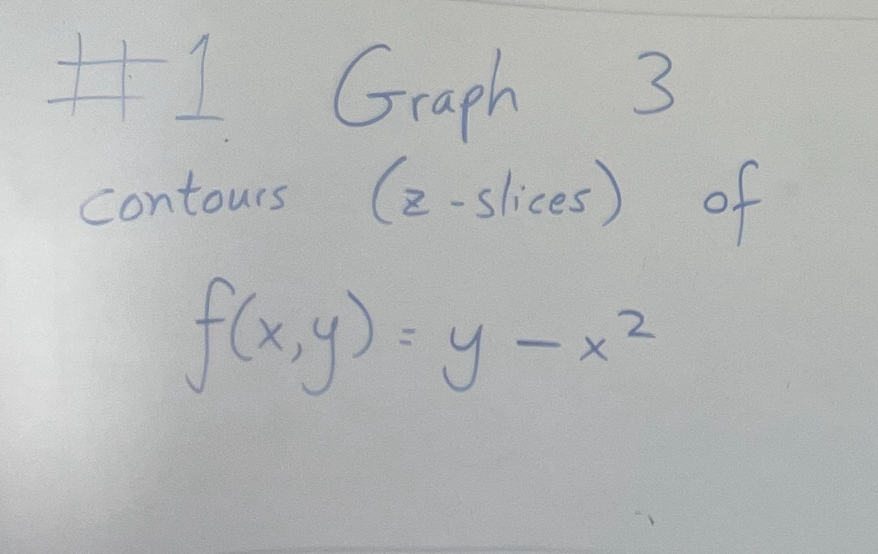 #1 Graph 3
contours (z-slices) of
f(x,y) = y - x²